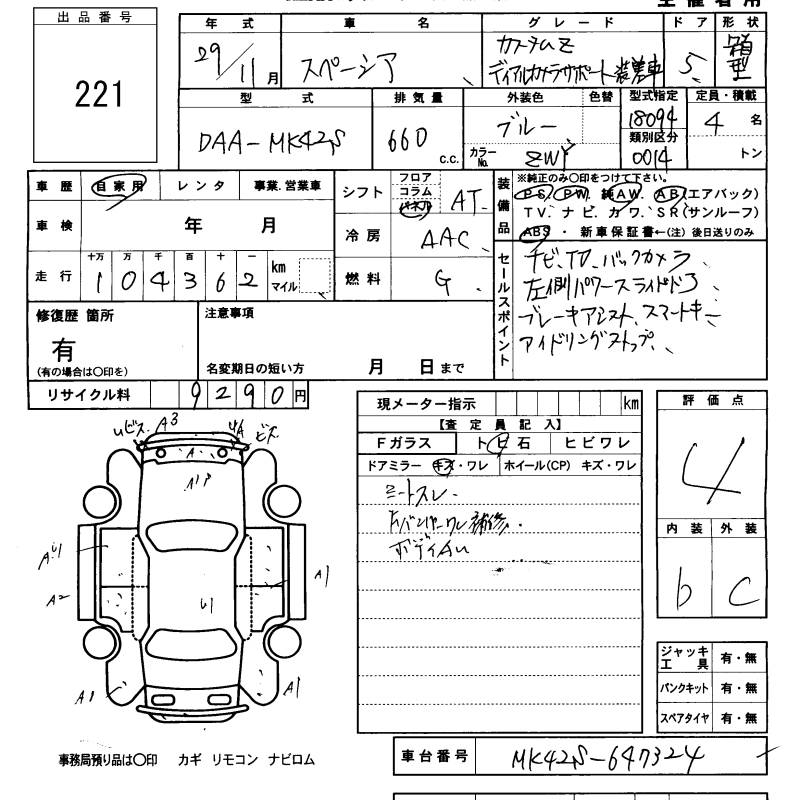 出品番号
221
年 式 車 名 グ レ ー ド ド ア 形 状
29/11月 スペーシア カスタムZ 5 箱型
デュアルカメラサポート装着車
型 式 排 気 量 外装色 色替 型式指定 定員・積載
DAA-MK42S 660 c.c. ブルー 18094 4 名
カラーNo. ZWY 類別区分 0014 トン
車 歴 自家用 レ ン タ 事業.営業車 シフト フロア コラム パネル AT
車 検 年 月 冷 房 AAC
走 行 十万 万 千 百 十 一 km マイル
1 0 4 3 6 2
燃 料 G
装備品 ※純正のみ〇印をつけて下さい。
PS. PW. 純AW. AB(エアバック)
TV. ナビ. カワ. SR(サンルーフ)
ABS ・ 新車保証書←(注) 後日送りのみ
セールスポイント
ナビ、TV、バックカメラ、
左側パワースライドドア
ブレーキアシスト、スマートキー
アイドリングストップ、
修復歴 箇所
有
(有の場合は〇印を)
注意事項
名変期日の短い方 月 日 まで
リサイクル料 9290 円
現メーター指示 km
【査 定 員 記 入】
Fガラス ト ビ 石 ヒ ビ ワ レ
ドアミラー キズ・ワレ ホイール(CP) キズ・ワレ
シートスレ
Fバンパーワレ補修.
ボディAU
評 価 点
4
内 装 外 装
b C
ジャッキ 工 具 有・無
パンクキット 有・無
スペアタイヤ 有・無
A3
UA
ビス
A
A1
U1
A2
A1
A1
事務局預り品は〇印 カギ リモコン ナビロム
車台番号 MK42S-647324